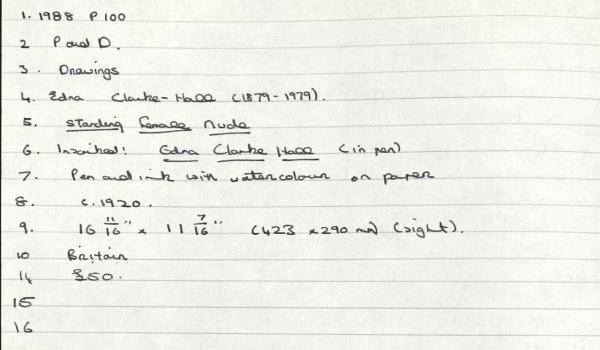 1. 1988 P 100
2 P and D.
3. Drawings
4. Edna Clarke-Hall (1879-1979).
5. Standing Female Nude
6. Inscribed: Edna Clarke Hall (in pen)
7. Pen and ink with watercolour on paper
8. c.1920.
9. 16 11/16" x 11 7/16" (423 x 290 mm) (sight).
10 Britain
14 £50.
15
16